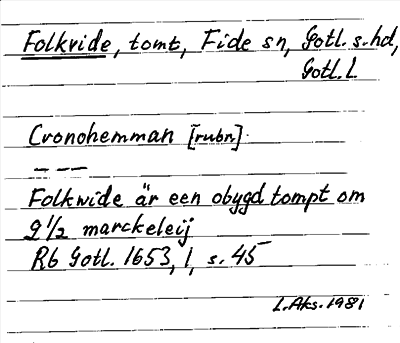 Folkvide, tomt, Fide sn, Gotl. s. hd,
Gotl. L
Cronohemman [rubr].
— — —
Folkwide är een obygd tompt om
9 1/2 marckeleij
Rb Gotl. 1653, 1, s. 45
L. Aks. 1981